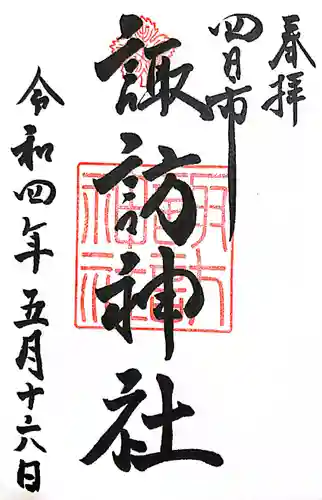 奉拝
四日市
諏訪神社
令和四年五月十六日